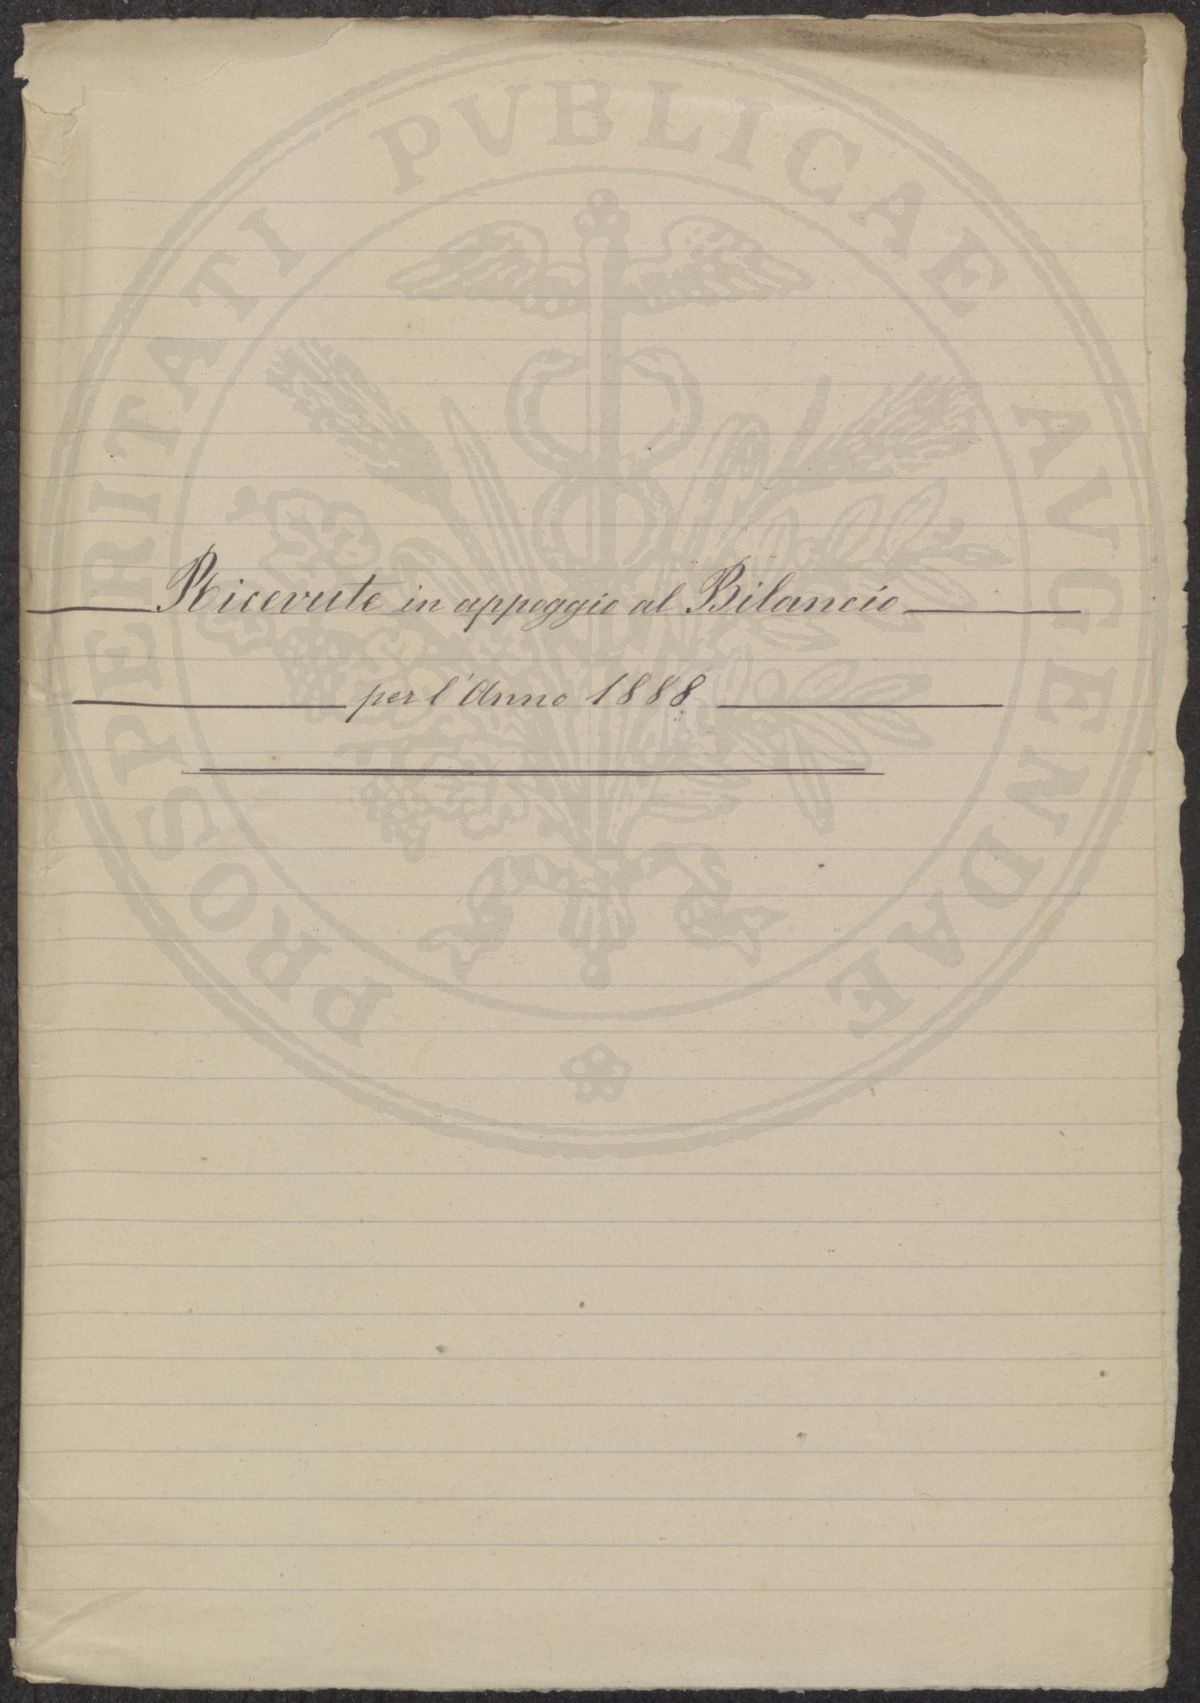 PROSPERITATI PVBLICAE AVGENDAE
Ricevute in appoggio al Bilancio
per l'Anno 1888.